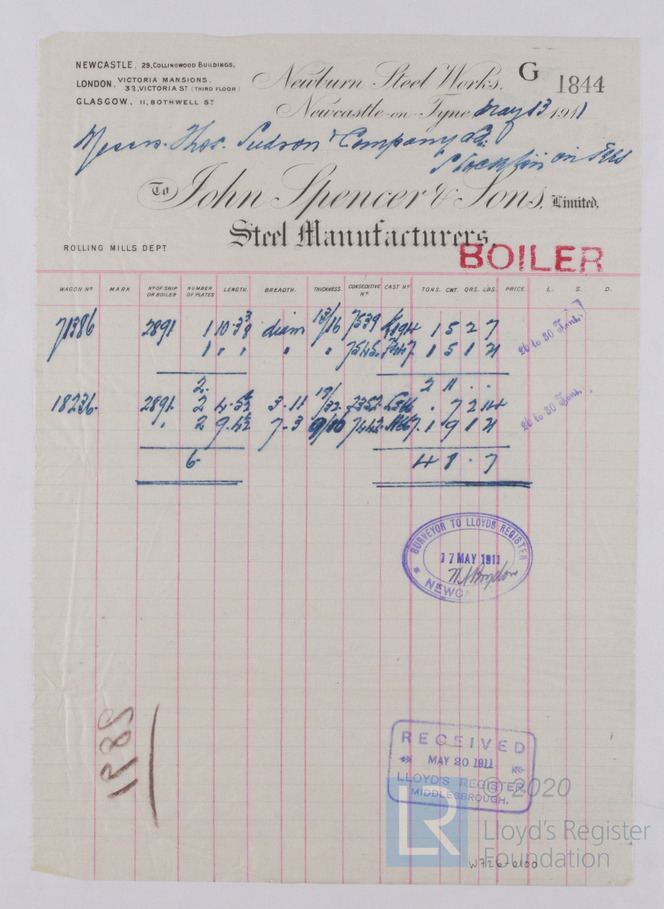 NEWCASTLE, 29, COLLINGWOOD BUILDINGS.
LONDON, VICTORIA MANSIONS. 32, VICTORIA ST (THIRD FLOOR)
GLASGOW, 11, BOTHWELL ST
Newburn Steel Works. G 1844
Newcastle-on-Tyne May 13 1911
Messrs. Thos. Sudron & Company Ld:
Stockton on Tees
To John Spencer & Sons, Limited.
Steel Manufacturers.
ROLLING MILLS DEPT
BOILER
WAGON Nº MARK Nº OF SHIP OR BOILER NUMBER OF PLATES LENGTH. BREADTH. THICKNESS. CONSECUTIVE Nº CAST Nº TONS. CWT. QRS. LBS. PRICE. £. S. D.
71386 2891 1 diam 13/16 7539 1 5 2 7
1 " " " 1 5 1 21
26 to 30 Tons.
2. 2 11 . .
18236 2891 2 3-11 . 7 2 14
" 2 7-3 1 9 1 21
26 to 30 Tons.
6 4 8 . 7
SURVEYOR TO LLOYDS REGISTER
17 MAY 1911
RECEIVED
MAY 20 1911
LLOYD'S REGISTER,
MIDDLESBROUGH.
© 2020
LR
Lloyd's Register
Foundation
W726-0100